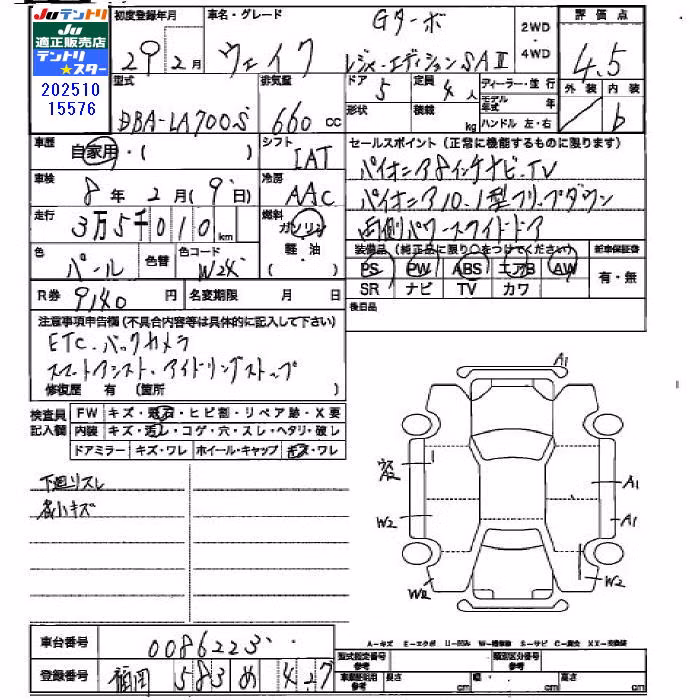 Juテントリ
Ju
適正販売店
テントリ
★スター
202510
15576
初度登録年月
29年2月
車名・グレード
Gターボ
ウェイク
レジャーエディションSAⅡ
2WD
・
4WD
評価点
4.5
外装 内装
b
型式
DBA-LA700S
排気量
660 cc
ドア 5
定員 4人
形状
積載 kg
ディーラー・並行
モデル年式 年
ハンドル 左・右
車歴
自家用・( )
シフト
IAT
セールスポイント(正常に機能するものに限ります)
パイオニア8インチナビ.TV
パイオニア10.1型フリップダウン
両側パワースライドドア
車検
8年2月(9日)
冷房
AAC
走行
3万5千010km
燃料
ガソリン
軽・油
・( )
色
パール
色替
色コード
W24
装備品(純正品に限り○をつけてください)
PS PW ABS エアB AW
SR ナビ TV カワ
新車保証書
有・無
R券 9140円
名変期限 月 日
後日品
注意事項申告欄(不具合内容等は具体的に記入して下さい)
ETC.バックカメラ
スマートアシスト.アイドリングストップ
修復歴 有 (箇所 )
検査員
記入欄
FW キズ・飛石・ヒビ割・リペア跡・X要
内装 キズ・汚レ・コゲ・穴・スレ・ヘタリ・破レ
ドアミラー キズ・ワレ ホイール・キャップ キズ・ワレ
下廻リスレ
各小キズ
A1
W2
A1
A1
W2
W2
A-キズ E-エクボ U-凹み W-補修跡 S-サビ C-腐食 XX-交換済
車台番号
0086223
登録番号
福岡 583 め 427
型式指定番号
参考
類別区分番号
参考
車庫証明用
参考
長さ cm
幅 cm
高さ cm